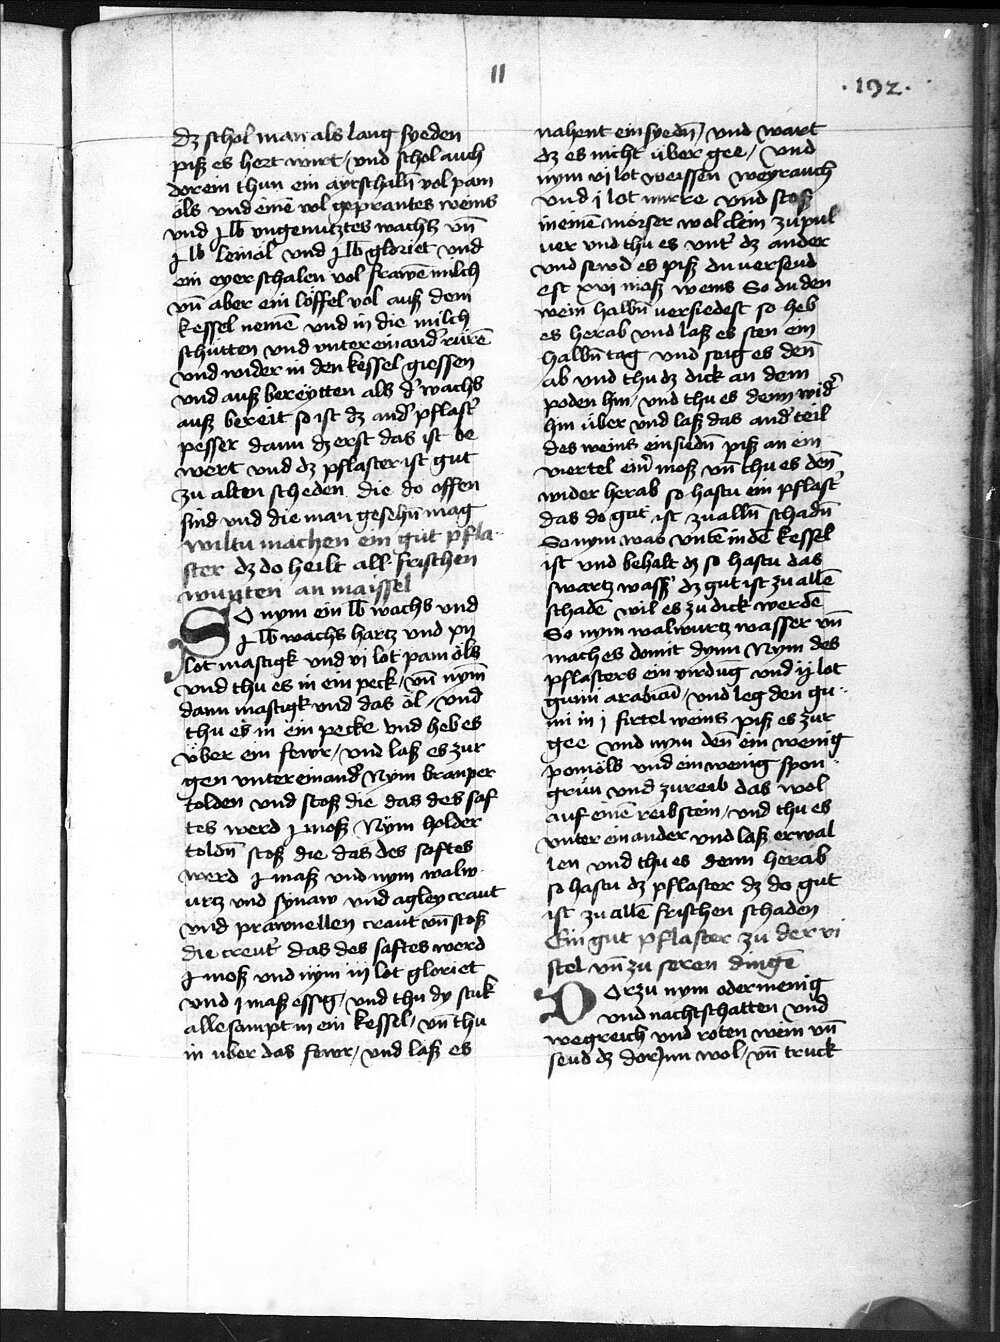 II
.192.
dz schol man als lang syeden
piß es hert wirt / und schol auch
dorein thun ein ayrschaln̄ vol pam
öls und einē vol geprantes weins
und j lb ungenucztes wachs vn̄
j lb leinöl und j lb gloriet und
ein eyer schalen vol frawē milch
vn̄ aber ein löffel vol auß dem
kessel nemē und in die milch
schütten und untereinand' rürē
und wider in den kessel giessen
und auß bereytten als d' wachs
auß bereit so ist dz and' pflast'
pesser dann dz erst das ist be
wert und dz pflaster ist gut
zu alten scheden die do offen
sind und die man gesehn̄ mag
wiltu machen ein gut pfla-
ster dz do heilt all frischen
wunten an maissel
So nym ein lb wachs und
j lb wachs hartz und xij
lot mastigk und vj lot pam öls
und thu es in ein peck / vn̄ nym
dann mastigk und das öl / und
thu es in ein pecke und heb es
über ein fewr / und laß es zur
gen untereinand' Nym braunper
tolden und stoß die das des saf
tes werd j moß Nym holder
toldn̄ stoß die das des saftes
werd j maß und nym walw
urtz und synaw und agleycraut
und prawnellen craut vn̄ stoß
die creut' das des saftes werd
j moß und nym iij lot gloriet
und j maß essig / und thu dy stuk
alle sampt in ein kessel / vn̄ thu
in uber das fewr / und laß es
nahent einsyedn̄ / und wart
dz es nicht über gee / und
nym vi lot weissen weyrauch
und j lot mirre und stoß
in einē mörser wol clein zu pul
uer und thu es unt' dz ander
und sewd es piß du versewd
est xvi moß weins So du den
wein halbn̄ versiedest so heb
es herab und laß es sten ein
halbn̄ tag und seig es den̄
ab und thu dz dick an dem
poden hin / und thu es denn wid'
hin über und laß das and' teil
des weins einsiedn̄ piß an ein
viertel ein' moß vn̄ thu es den̄
wider herab so hastu ein pflast'
das do gut ist zu alln̄ schadn̄
So nym was untē in dē kessel
ist und behalt dz so hastu das
swartz wass' dz gut ist zu allē
schadē wil es zu dick werdē
So nym walwurtz wasser vn̄
mach es domit dynn Nym des
pflasters ein virdūg und ij lot
gumi arabicū / und leg den gu-
mi in j firtel weins piß es zur
gee und nym den̄ ein wenig
pomöls und ein wenig spon
grün und zureib das wol
auf einē reibstein / und thu es
unter einander und laß erwal
len und thu es denn herab
so hastu dz pflaster dz do gut
ist zu allē frischen schaden
Ein gut pflaster zu der vi
stel vn̄ zu seren dingē
Dorzu nym odermenig
und nachtschatten und
wegreich und roten wein vn̄
seud dz dorjnn wol / vn̄ truck